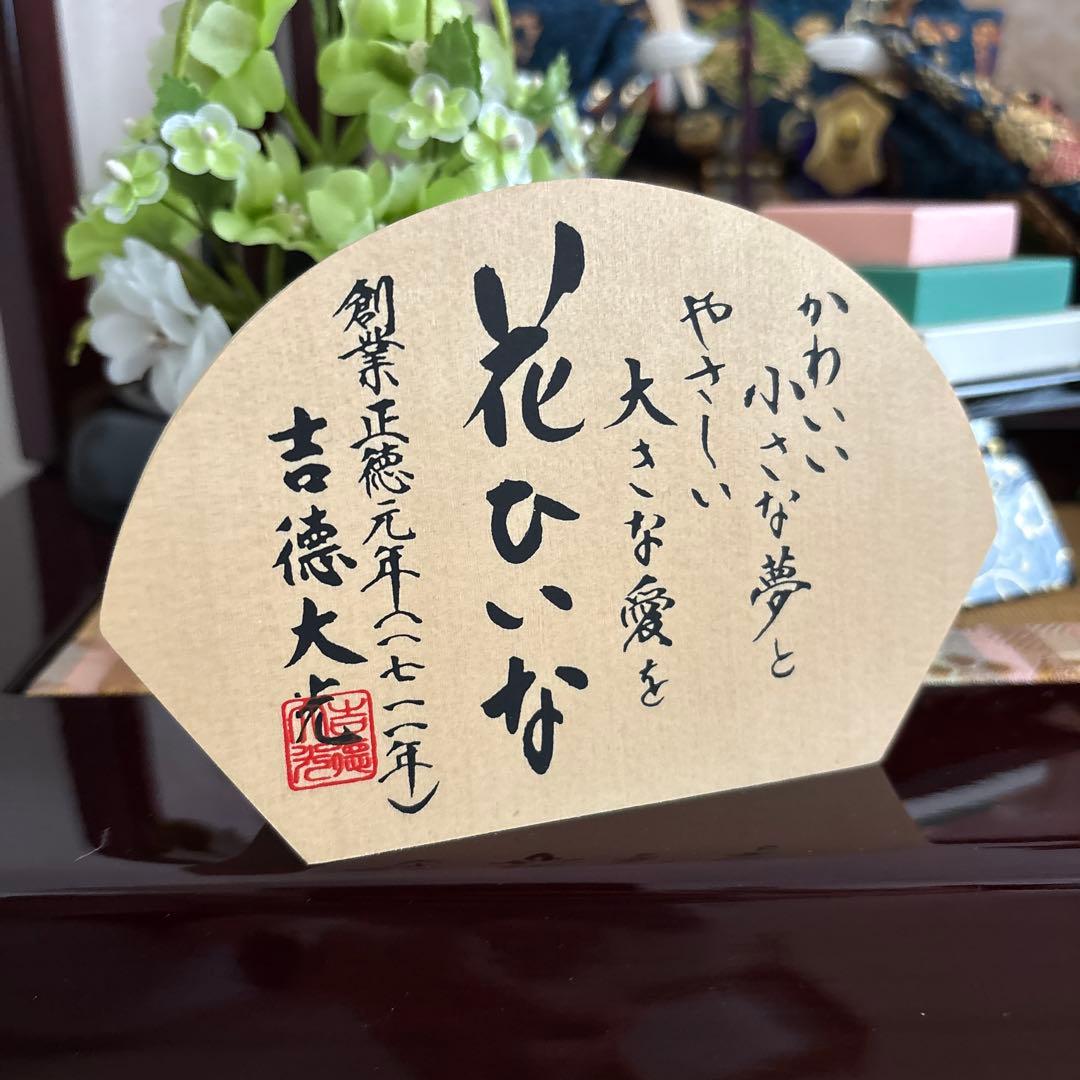 かわいい
小さな夢と
やさしい
大きな愛を
花ひいな
創業正徳元年(一七一一年)
吉德大光
吉德